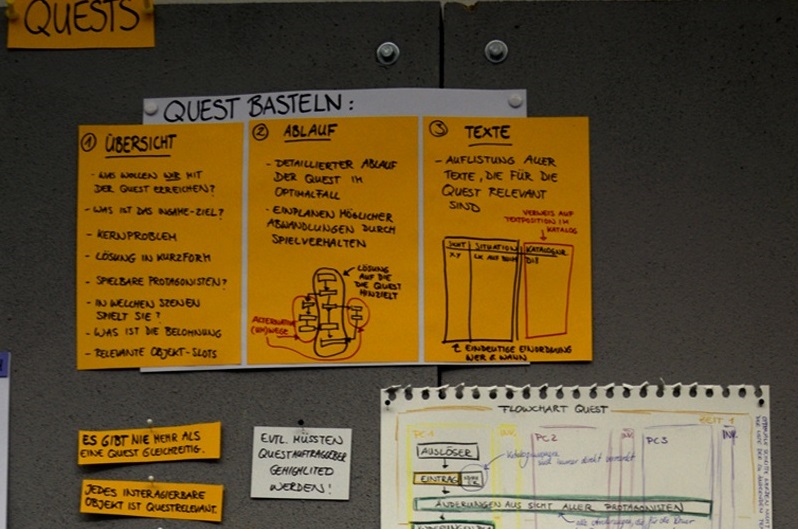 QUESTS
QUEST BASTELN:
① ÜBERSICHT
- WAS WOLLEN WIR MIT
DER QUEST ERREICHEN?
- WAS IST DAS INGAME-ZIEL?
- KERNPROBLEM
- LÖSUNG IN KURZFORM
- SPIELBARE PROTAGONISTEN?
- IN WELCHEN SZENEN
SPIELT SIE?
- WAS IST DIE BELOHNUNG
- RELEVANTE OBJEKT-SLOTS
② ABLAUF
- DETAILLIERTER ABLAUF
DER QUEST IM
OPTIMALFALL
- EINPLANEN MÖGLICHER
ABWANDLUNGEN DURCH
SPIELVERHALTEN
LÖSUNG
AUF DIE
DIE QUEST
HINZIELT
ALTERNATIVE
(UM)WEGE
③ TEXTE
- AUFLISTUNG ALLER
TEXTE, DIE FÜR DIE
QUEST RELEVANT
SIND
VERWEIS AUF
TEXTPOSITION IM
KATALOG
SITUATION
KATALOGNR.
X.Y
EINDEUTIGE EINORDNUNG
WER & WANN
ES GIBT NIE MEHR ALS
EINE QUEST GLEICHZEITIG.
JEDES INTERAGIERBARE
OBJEKT IST QUESTRELEVANT.
EVTL. MÜSSTEN
QUESTAUFTRAGGEBER
GEHIGHLITED
WERDEN!
FLOWCHART QUEST
ZEIT
PC1
INV.
PC2
INV.
PC3
INV.
AUSLÖSER
EINTRAG
ÄNDERUNGEN AUS SICHT ALLER PROTAGONISTEN